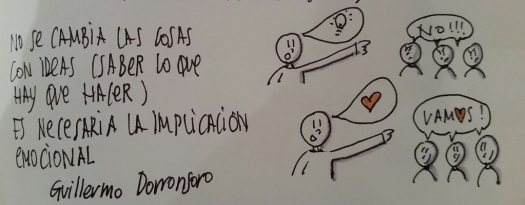 NO SE CAMBIA LAS COSAS
CON IDEAS (SABER LO QUE
HAY QUE HACER)
ES NECESARIA LA IMPLICACIÓN
EMOCIONAL
Guillermo Dorronsoro
NO!!!
VAMOS!